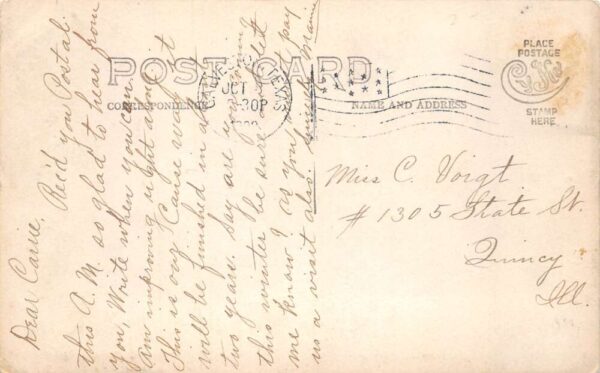 POST CARD
CORRESPONDENCE
NAME AND ADDRESS
PLACE
POSTAGE
STAMP
HERE
OCT
-30P
Dear Carrie, Rec'd you Postal
this A.M. so glad to hear from
you, Write when you can
Am improving right along
This is our 'Cause way it
will be finished in about
two years. Say are
this winter be sure and let
me know! as you must pay
us a visit also. Sincerely
Miss C. Voigt
# 1305 State St.
Quincy
Ill.